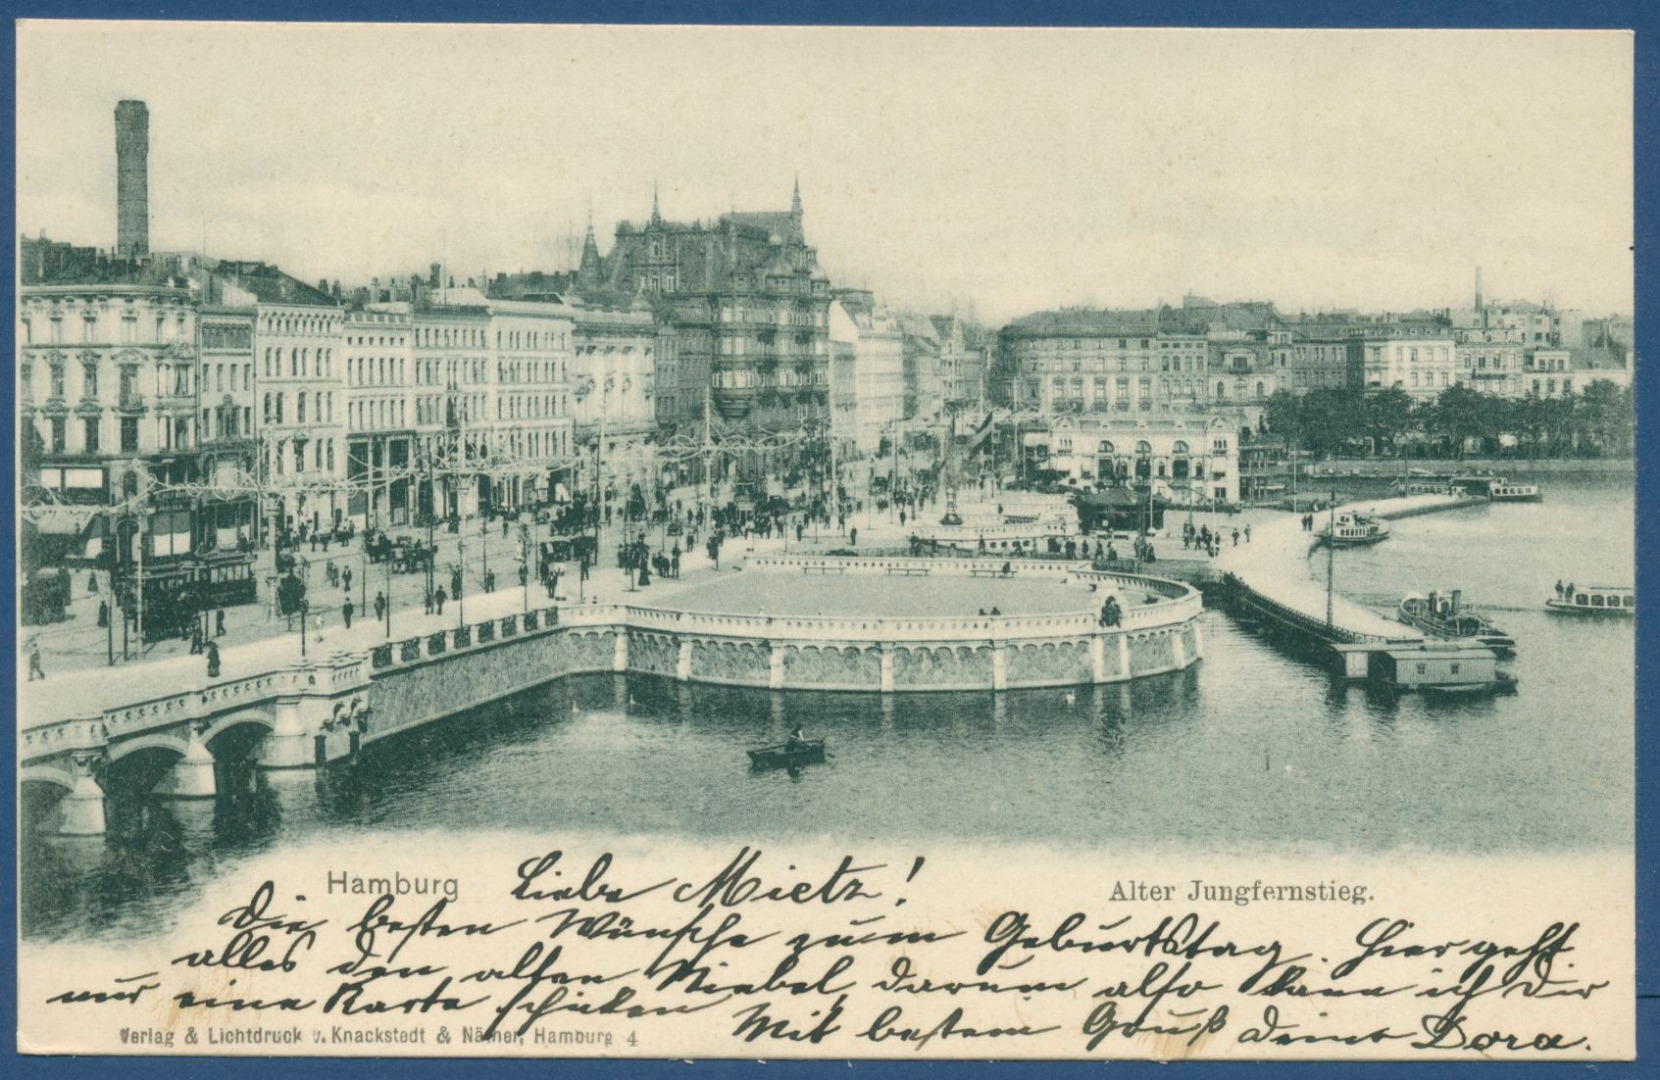 Hamburg
Alter Jungfernstieg.
Liebe Mietz!
Die besten Wünsche zum Geburtstag. Hier geht
alles den alten Niebel, darum also kann ich Dir
nur eine Karte schicken. Mit bestem Gruß Deine Dora.
Verlag & Lichtdruck v. Knackstedt & Näther, Hamburg 4